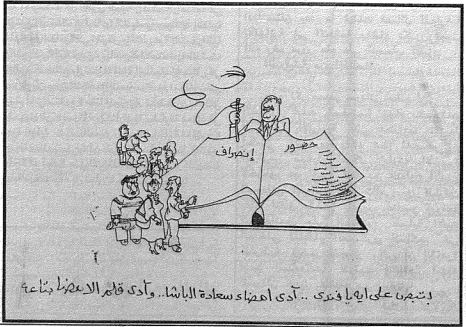 حضور
إنصراف
بتبص على ايه يا فندى .. آدى امضاء سعادة الباشا.. وآدى قلم الامضا بتاعه